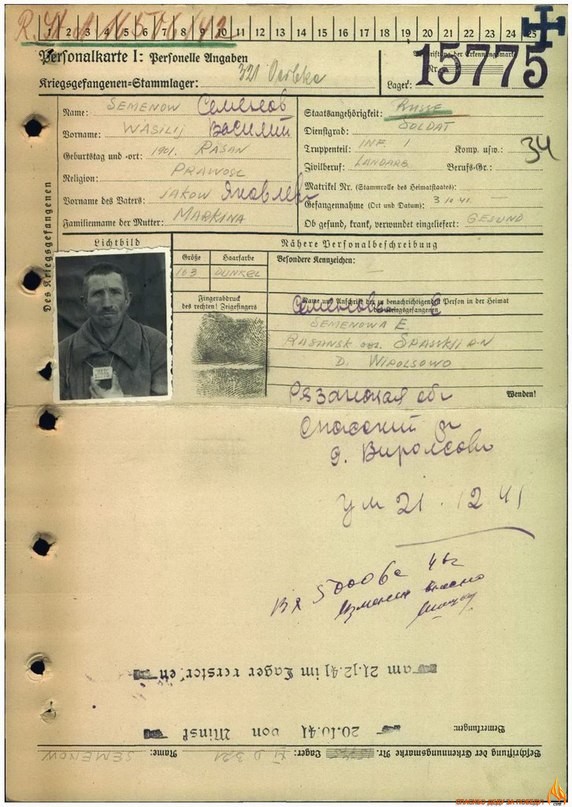 1 2 3 4 5 6 7 8 9 10 11 12 13 14 15 16 17 18 19 20 21 22 23 24 25
Personalkarte I: Personelle Angaben
Kriegsgefangenen-Stammlager: 321
Beschriftung der Erkennungsmarke
Nr. 15775
Lager:
Des Kriegsgefangenen
Name: SEMENOW Семенов
Vorname: WASILIJ Василий
Geburtstag und -ort: 1901. RASAN
Religion: PRAWOSL
Vorname des Vaters: JAKOW Яковлев
Familienname der Mutter: MARKINA
Staatsangehörigkeit: RUSSE
Dienstgrad: SOLDAT
Truppenteil: INF. 1 Komp. usw.: 34
Zivilberuf: LANDARB. Berufs-Gr.:
Matrikel Nr. (Stammrolle des Heimatstaates):
Gefangennahme (Ort und Datum): 3.10.41.
Ob gesund, krank, verwundet eingeliefert: GESUND
Lichtbild
Größe Haarfarbe
163 DUNKEL
Fingerabdruck
des rechten! Zeigefingers
Nähere Personalbeschreibung
Besondere Kennzeichen:
Name und Anschrift der zu benachrichtigenden Person in der Heimat
des Kriegsgefangenen
Семенова Е
SEMENOWA E.
RASANSK OBL. SPASKIJ
D. WIROLSOWO
Wenden!
Рязанская обл
Спасский
д. Виролсово
ум 21.12.41
ВХ 50006с 46г
am 21.12.41 im Lager verstorben
20.10.41 von Minsk
Bemerkungen:
Beschriftung der Erkennungsmarke Nr. 15775 Lager: 321 Name: SEMENOW